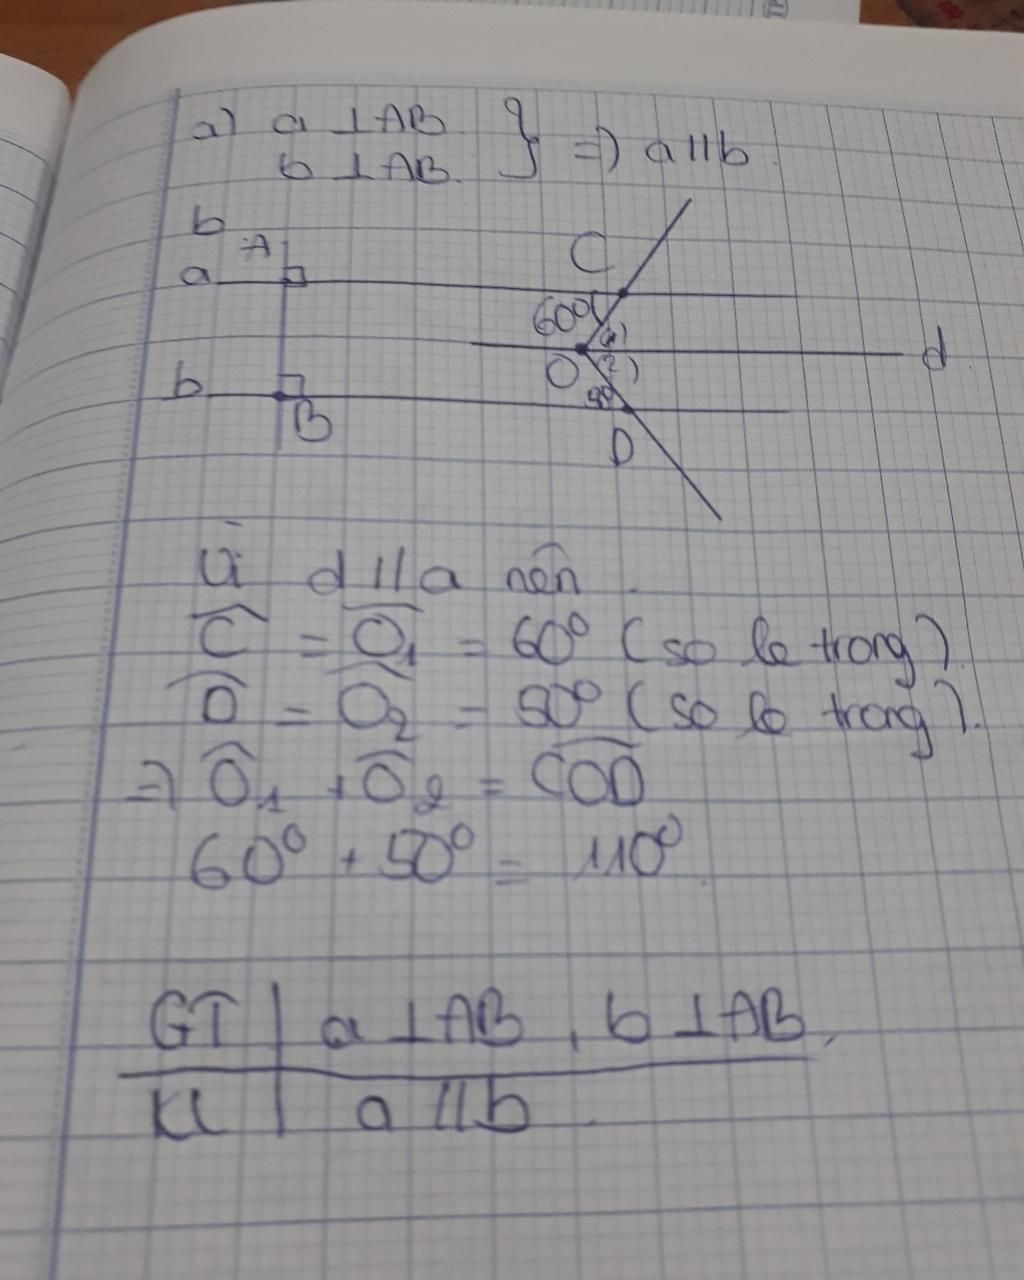 a) a ⊥AB } => a//b
b ⊥AB.
b
A
a
C
60°
1
d
O
2
b
B
D
Vì d//a nên
Ĉ = Ô1 = 60° (so le trong)
D̂ = Ô2 = 50° (so le trong).
=> Ô1 + Ô2 = ĈOD
60° + 50° = 110°
GT | a ⊥AB, b ⊥AB.
KL | a //b.